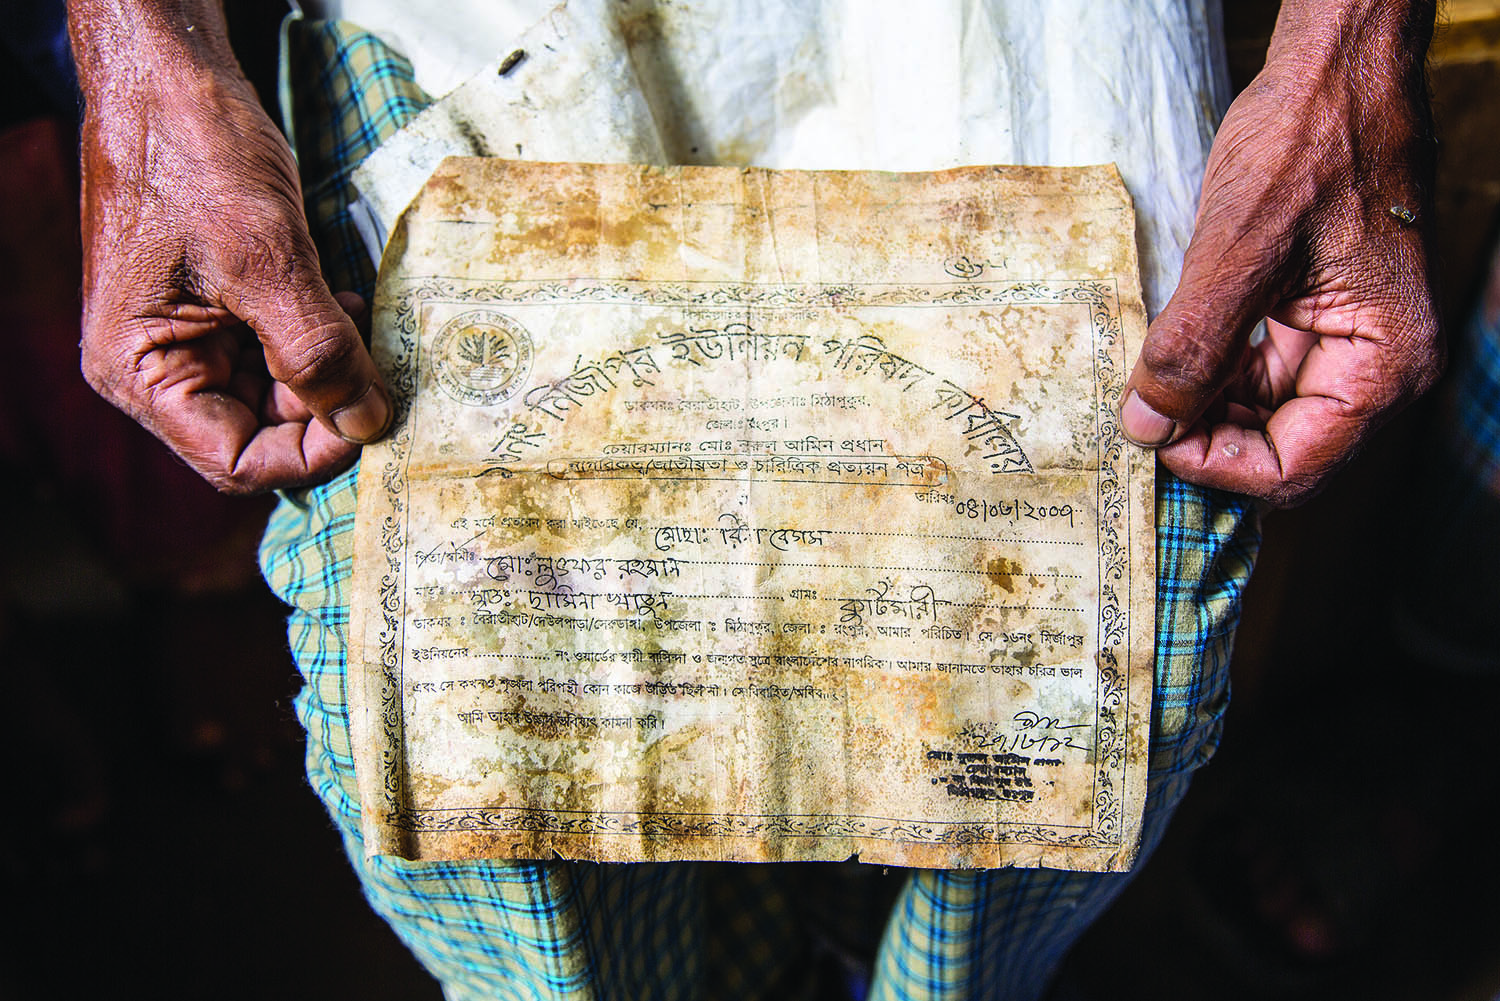 ১৬নং মির্জাপুর ইউনিয়ন পরিষদ কার্যালয়
ডাকঘরঃ বৈরাতীহাট, উপজেলাঃ মিঠাপুকুর,
জেলাঃ রংপুর।
চেয়ারম্যানঃ মোঃ নুরুল আমিন প্রধান
নাগরিকত্ব/জাতীয়তা ও চারিত্রিক প্রত্যয়ন পত্র
তারিখঃ
এই মর্মে প্রত্যয়ন করা যাইতেছে যে, মোছাঃ রিনা বেগম
পিতা/স্বামীঃ মোঃ লুৎফর রহমান
মাতাঃ খাতুন গ্রামঃ
ডাকঘর ঃ বৈরাতীহাট/দেউলপাড়া/সেরুডাঙ্গা, উপজেলা ঃ মিঠাপুকুর, জেলা ঃ রংপুর, আমার পরিচিত। সে ১৬নং মির্জাপুর
ইউনিয়নের .................. নং ওয়ার্ডের স্থায়ী বাসিন্দা ও জন্মগত সুত্রে বাংলাদেশের নাগরিক। আমার জানামতে তাহার চরিত্র ভাল
এবং সে কখনও শৃঙ্খলা পরিপন্থী কোন কাজে জড়িত ছিল না। সে বিবাহিত/অবিবা
আমি তাহার উজ্জ্বল ভবিষ্যৎ কামনা করি।
মোঃ নুরুল আমিন প্রধান
চেয়ারম্যান